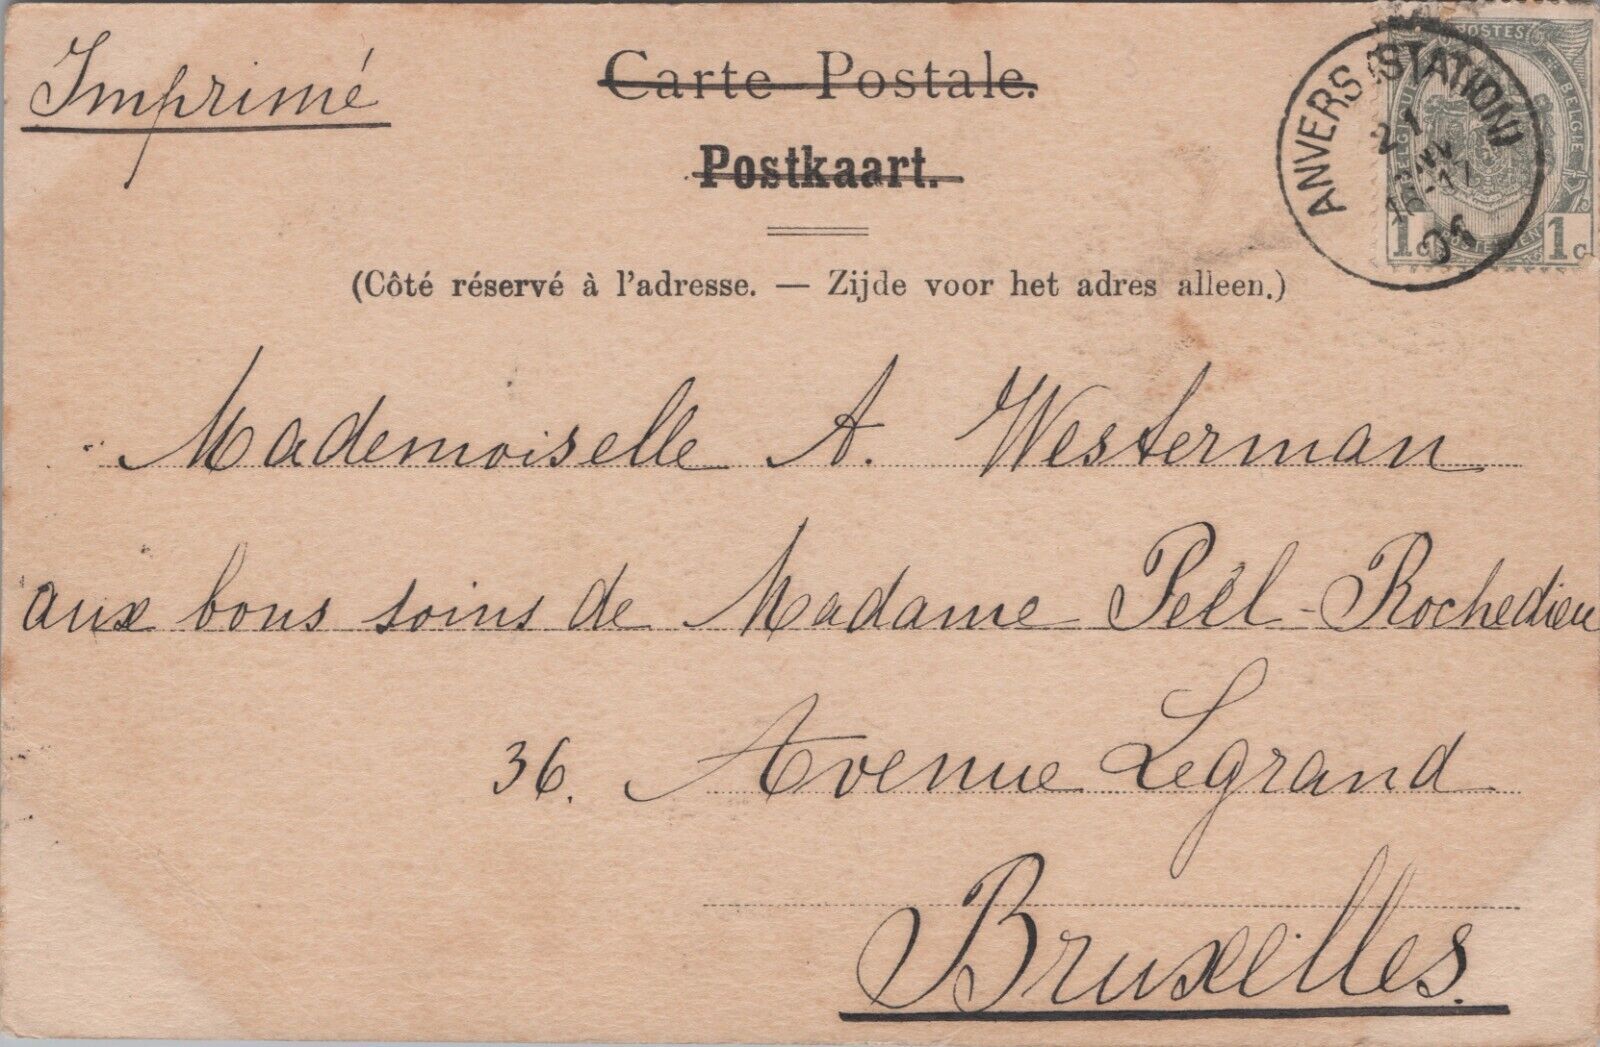 Imprimé
Carte Postale.
Postkaart.
(Côté réservé à l'adresse. — Zijde voor het adres alleen.)
ANVERS (STATION)
21
POSTES
BELGIE
1c 1c
Mademoiselle A. Westerman
aux bons soins de Madame Peèl-Rochedieu
36. Avenue Legrand
Bruxelles.